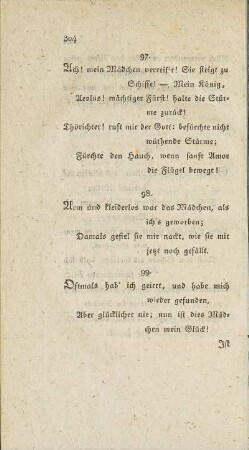 304
97.
Ach! mein Mädchen verreis't! Sie steigt zu
Schiffe! —. Mein König,
Aeolus! mächtiger Fürst! halte die Stür-
me zurück!
Thörichter! ruft mir der Gott: befürchte nicht
wüthende Stürme;
Fürchte den Hauch, wenn sanft Amor
die Flügel bewegt!
98.
Arm und kleiderlos war das Mädchen, als
ich's geworben;
Damals gefiel sie mir nackt, wie sie mir
jetzt noch gefällt.
99.
Oftmals hab' ich geirrt, und habe mich
wieder gefunden,
Aber glücklicher nie; nun ist dies Mäd-
chen mein Glück!
Ist